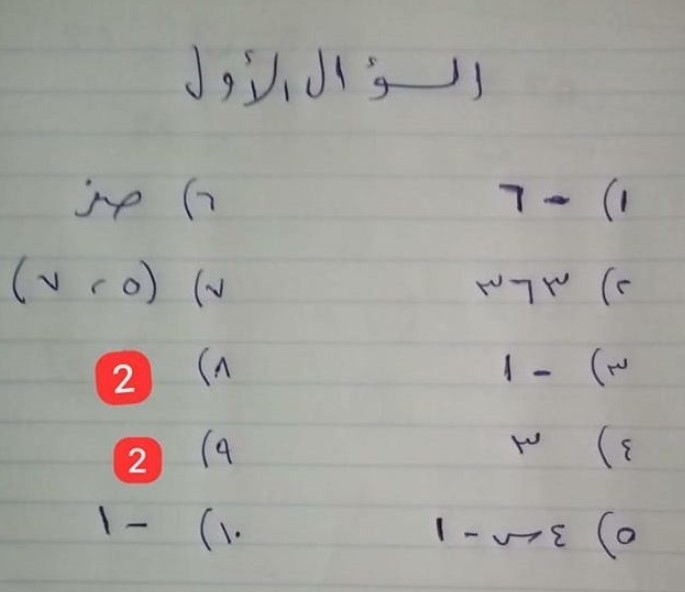 السؤال الأول
١) - ٦
٢) ٣٦٣
٣) - ١
٤) ٣
٥) ٤س - ١
٦) صفر
٧) (٥ ، ٧)
٨) 2
٩) 2
١٠) - ١